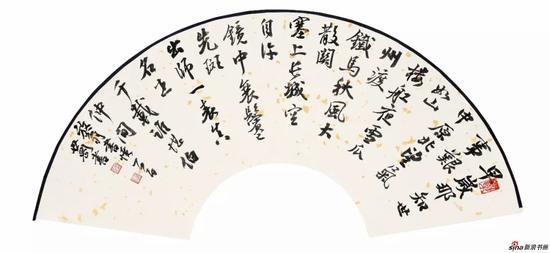 早歲那知世
事艱
中原北望氣
如山樓
船夜雪瓜
州渡
鐵馬秋風大
散關
塞上長城空
自許
鏡中衰鬢已
先斑
出師一表真
名世
千載誰堪伯
仲間
放翁書憤
sina新浪书画